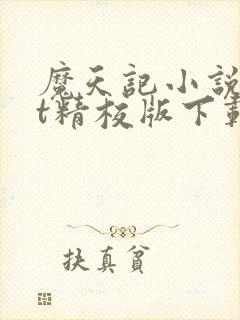 魔天記小說
t精校版下載
扶真貧